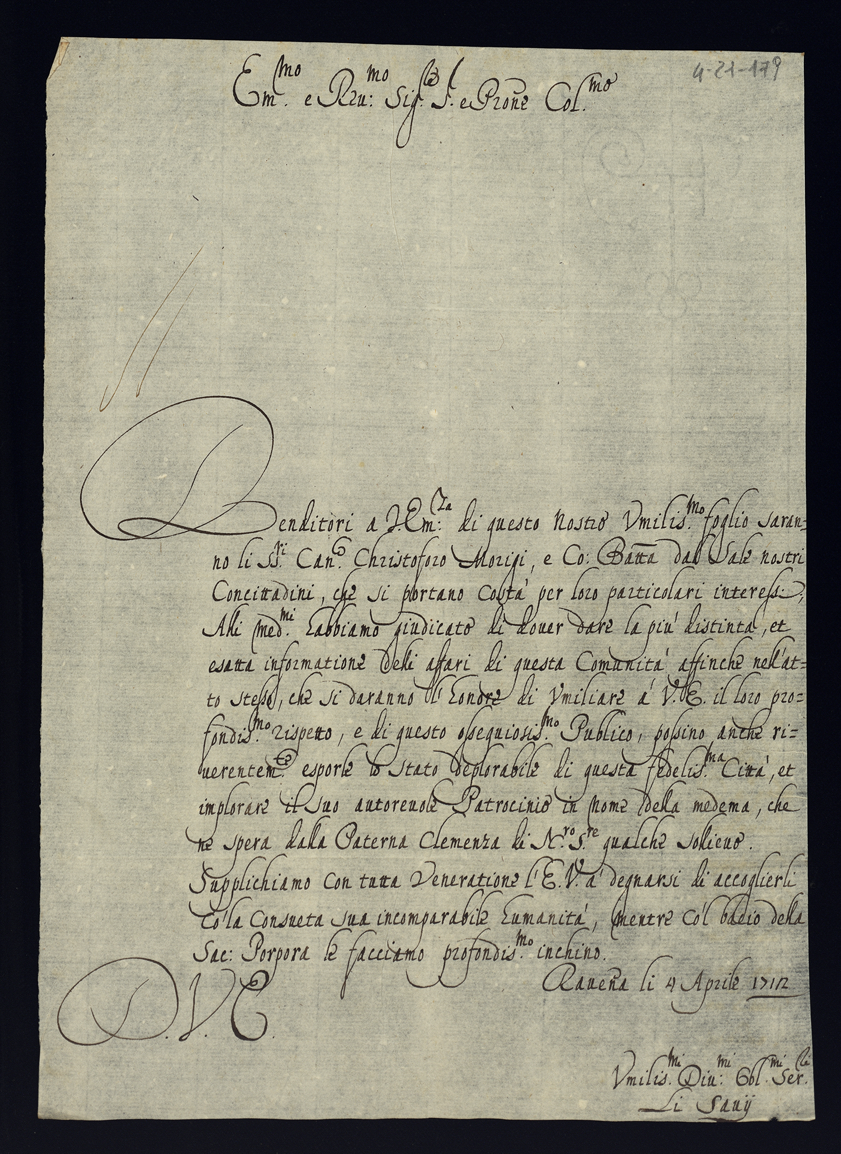 4-21-179
Em.mo e Rev:mo Sig.re S.r e Prone Col.mo
Renditori a V. Em:za di questo nostro Vmilis.mo foglio saran=
no li SS.ri Can.co Christoforo Morigi, e Co: Batta dal Sale nostri
Concittadini, che si portano costà per loro particolari interessi,
Alli med.mi habbiamo giudicato di dover dare la più distinta, et
esatta informatione delli affari di questa Comunità affinche nell'at=
to stesso, che si daranno l'honore di Vmiliare à V. E. il loro pro=
fondis.mo rispetto, e di questo ossequiosis.mo Publico, possino anche ri=
uerentem.te esporle lo stato deplorabile di questa fedelis.ma Città, et
implorare il suo autoreuole Patrocinio in nome della medema, che
ne spera dalla Paterna Clemenza di N.ro S.re qualche sollieuo.
Supplichiamo con tutta Veneratione l'E. V. à degnarsi di accoglierli
co' la consueta sua incomparabile humanità, mentre co'l bacio della
Sac: Porpora le facciamo profondis.mo inchino.
Rauena li 4 Aprile 1712
D. V. E.
Vmilis.mi Diu:mi Obl.mi Ser.ri
Li Sauij